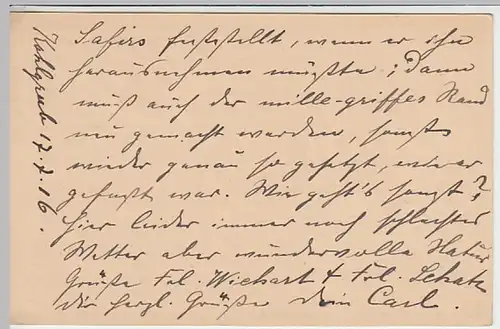 Kohlgrub 17.7.16.
Safirs feststellt, wenn er ihn
herausnehmen müßte; Dann
muß auch der mille-griffes Rand
neu gemacht werden, sonst
wieder genau so gefaßt, er
gefaßt war. Wie geht's sonst?
hier leider immer noch schlechtes
Wetter aber wundervolle Natur
Grüße Frl. Wichart & Frl. Schatz
dir herzl. Grüße dein Carl.